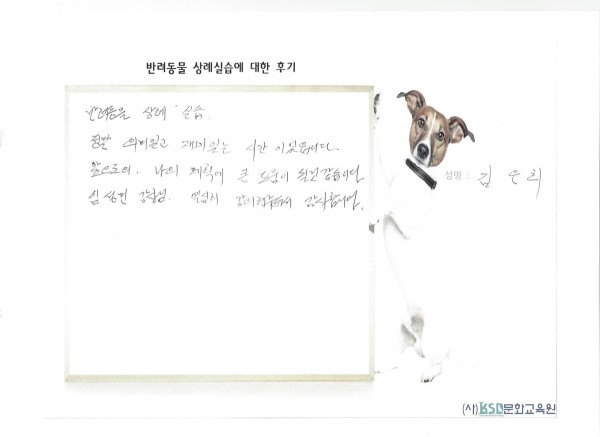 반려동물 상례실습에 대한 후기
반려동물 상례 실습.
정말 의미있고 재미있는 시간 이었습니다.
앞으로의. 나의 계획에 큰 도움이 될것 같습니다.
강사님. 열심히 감사합니다.
성명 : 김은희
(사)KSD문화교육원